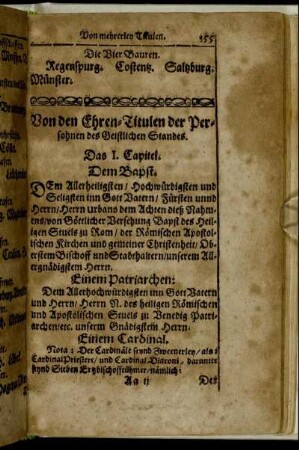 Von mehrerley Titulen. 155
Die Vier Bauren.
Regenspurg. Costentz. Saltzburg.
Münster.
Von den Ehren-Titulen der Per-
sohnen des Geistlichen Standes.
Das I. Capitel.
Dem Bapst.
DEm Allerheiligsten / Hochwürdigsten und
Seligsten inn Gott Vatern / Fürsten unnd
Herrn / Herrn urbans dem Achten dieß Nah-
mens / von Göttlicher Versehung Bapst des Heil-
igen Stuels zu Rom / der Römischen Apostol-
lischen Kirchen und gemeiner Christenheit / Ob-
erstem Bischoff und Stadthaltern / unserem All-
ergnädigstem Herrn.
Einem Patriarchen:
Dem Allerhochwürdigsten inn Gott Vatern
und Herrn / Herrn N. des heiligen Römischen
und Apostolischen Stuels zu Venedig Patri-
archen / etc. unserm Gnädigstein Herrn.
Einem Cardinal.
Nota : Der Cardinäle seynd
Cardinal Priestere / und Cardinal Diaconi / darunter
seynd Sieben Ertzbischoffthümer / nämlich :
Aa ij Des